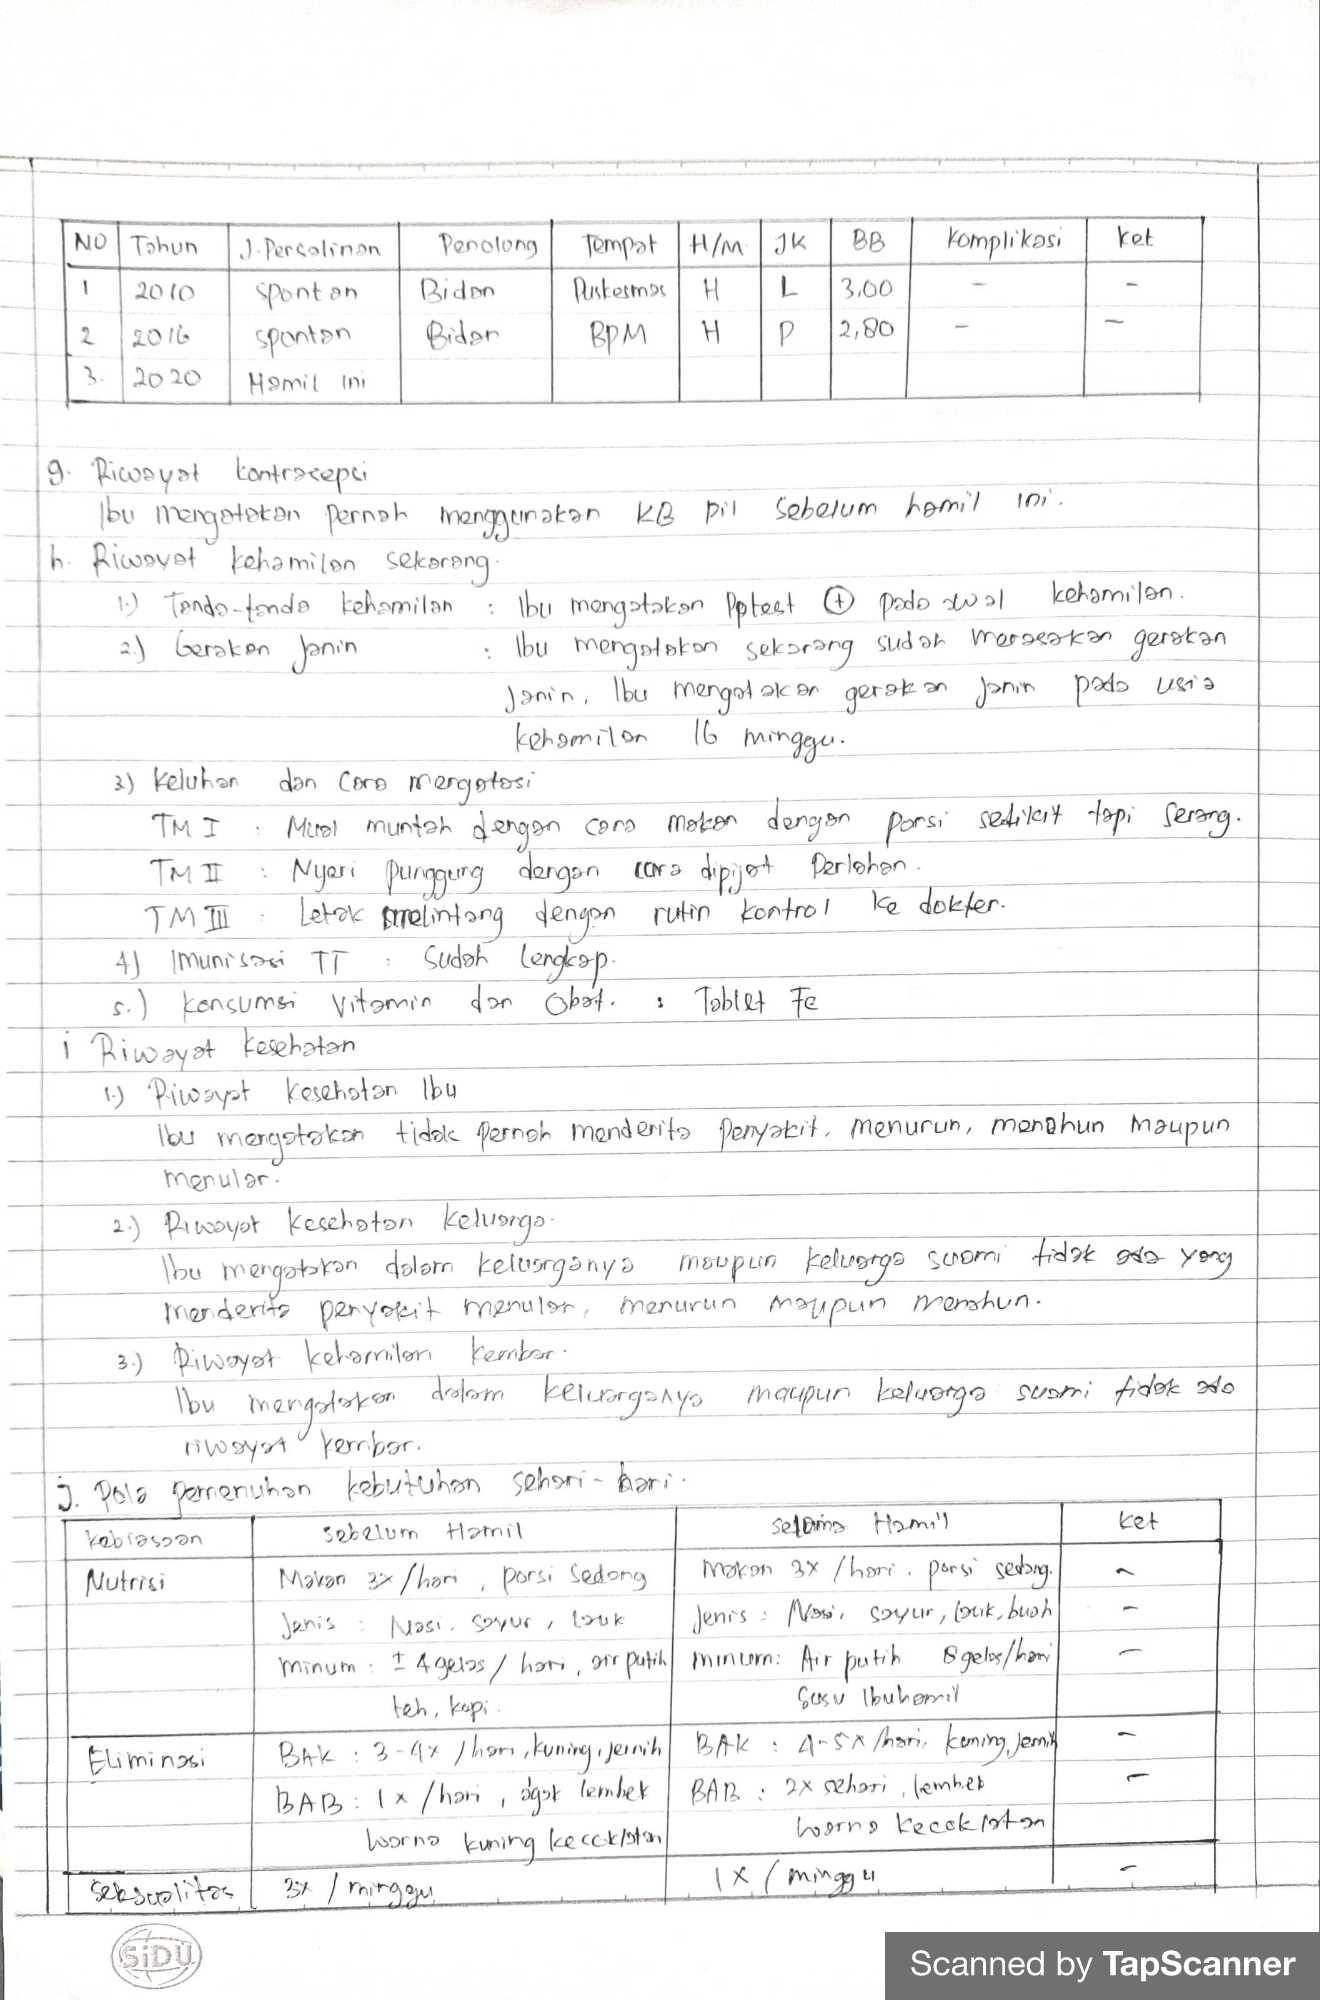 NO Tahun J.Persalinan Penolong Tempat H/M JK BB Komplikasi ket
1 2010 Spontan Bidan Puskesmas H L 3,00 - -
2 2016 Spontan Bidan BPM H P 2,80 - -
3. 2020 Hamil ini
g. Riwayat kontrasepsi
Ibu mengatakan pernah menggunakan KB pil sebelum hamil ini.
h. Riwayat kehamilan sekarang.
1.) Tanda-tanda kehamilan : Ibu mengatakan Pptest ⊕ pada awal kehamilan.
2.) Gerakan Janin : Ibu mengatakan sekarang sudah merasakan gerakan
Janin, Ibu mengatakan gerakan Janin pada usia
kehamilan 16 minggu.
3) Keluhan dan Cara mengatasi
TM I : Mual muntah dengan cara makan dengan porsi sedikit tapi serang.
TM II : Nyeri punggung dengan cara dipijat Perlahan.
TM III : Letak melintang dengan rutin kontrol ke dokter.
4) Imunisasi TT : Sudah lengkap.
5.) Konsumsi Vitamin dan Obat. : Tablet Fe
i Riwayat kesehatan
1.) Riwayat kesehatan Ibu
Ibu mengatakan tidak pernah menderita penyakit, menurun, menahun maupun
menular.
2.) Riwayat kesehatan keluarga.
Ibu mengatakan dalam keluarganya maupun keluarga suami tidak ada yang
menderita penyakit menular, menurun maupun menahun.
3.) Riwayat kehamilan kembar.
Ibu mengatakan dalam keluarganya maupun keluarga suami tidak ada
riwayat kembar.
J. Pola pemenuhan kebutuhan sehari-hari.
kebiasaan Sebelum Hamil Selama Hamil ket
Nutrisi Makan 3x/hari, porsi sedang Makan 3x/hari. porsi sedang. -
Jenis : Nasi, sayur, lauk Jenis : Nasi, sayur, lauk, buah -
Minum : ± 4 gelas/hari, air putih minum: Air putih 8 gelas/hari -
teh, kopi. Susu Ibu hamil
Eliminasi BAK : 3-4x/hari, kuning, jernih BAK : 4-5x/hari, kuning, jernih -
BAB : 1x/hari, agak lembek BAB : 2x sehari, lembek -
warna kuning kecoklatan warna kecoklatan
Seksualitas 3x/minggu 1x/minggu -
SiDU
Scanned by TapScanner